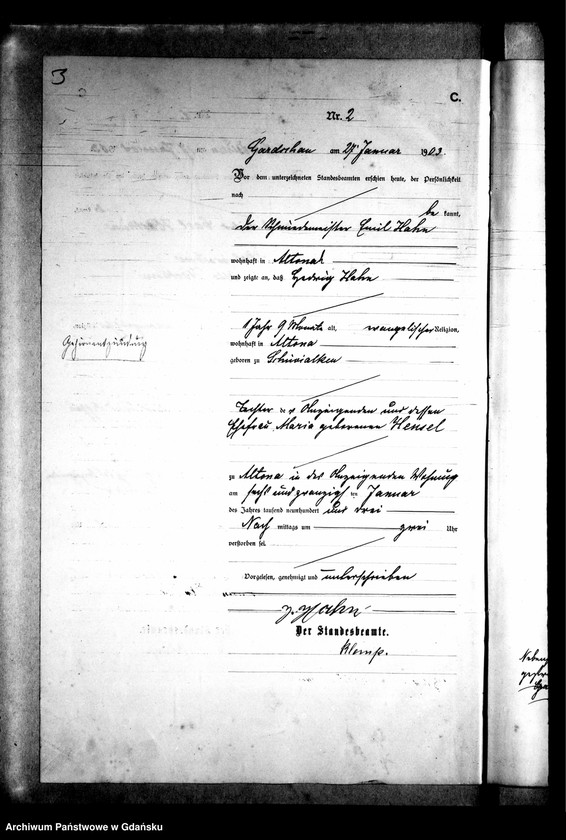 C.
Nr. 2
Gardschau am 27 Januar 1903.
Vor dem unterzeichneten Standesbeamten erschien heute, der Persönlichkeit
nach
be kannt,
der Schmiedemeister Emil Hahn
wohnhaft in Altona
und zeigte an, daß Hedwig Hahn
1 Jahr 9 Monate alt, evangelischer Religion,
Gehirnentzündung
wohnhaft in Altona
geboren zu
Tochter des Anzeigenden und dessen
Ehefrau Maria geborenen Hensel
zu Altona in des Anzeigenden Wohnung
am sechs und zwanzigsten Januar
des Jahres tausend neunhundert und drei
Nach mittags um zwei Uhr
verstorben sei.
Vorgelesen, genehmigt und unterschrieben
Hahn
Der Standesbeamte.
Archiwum Państwowe w Gdańsku